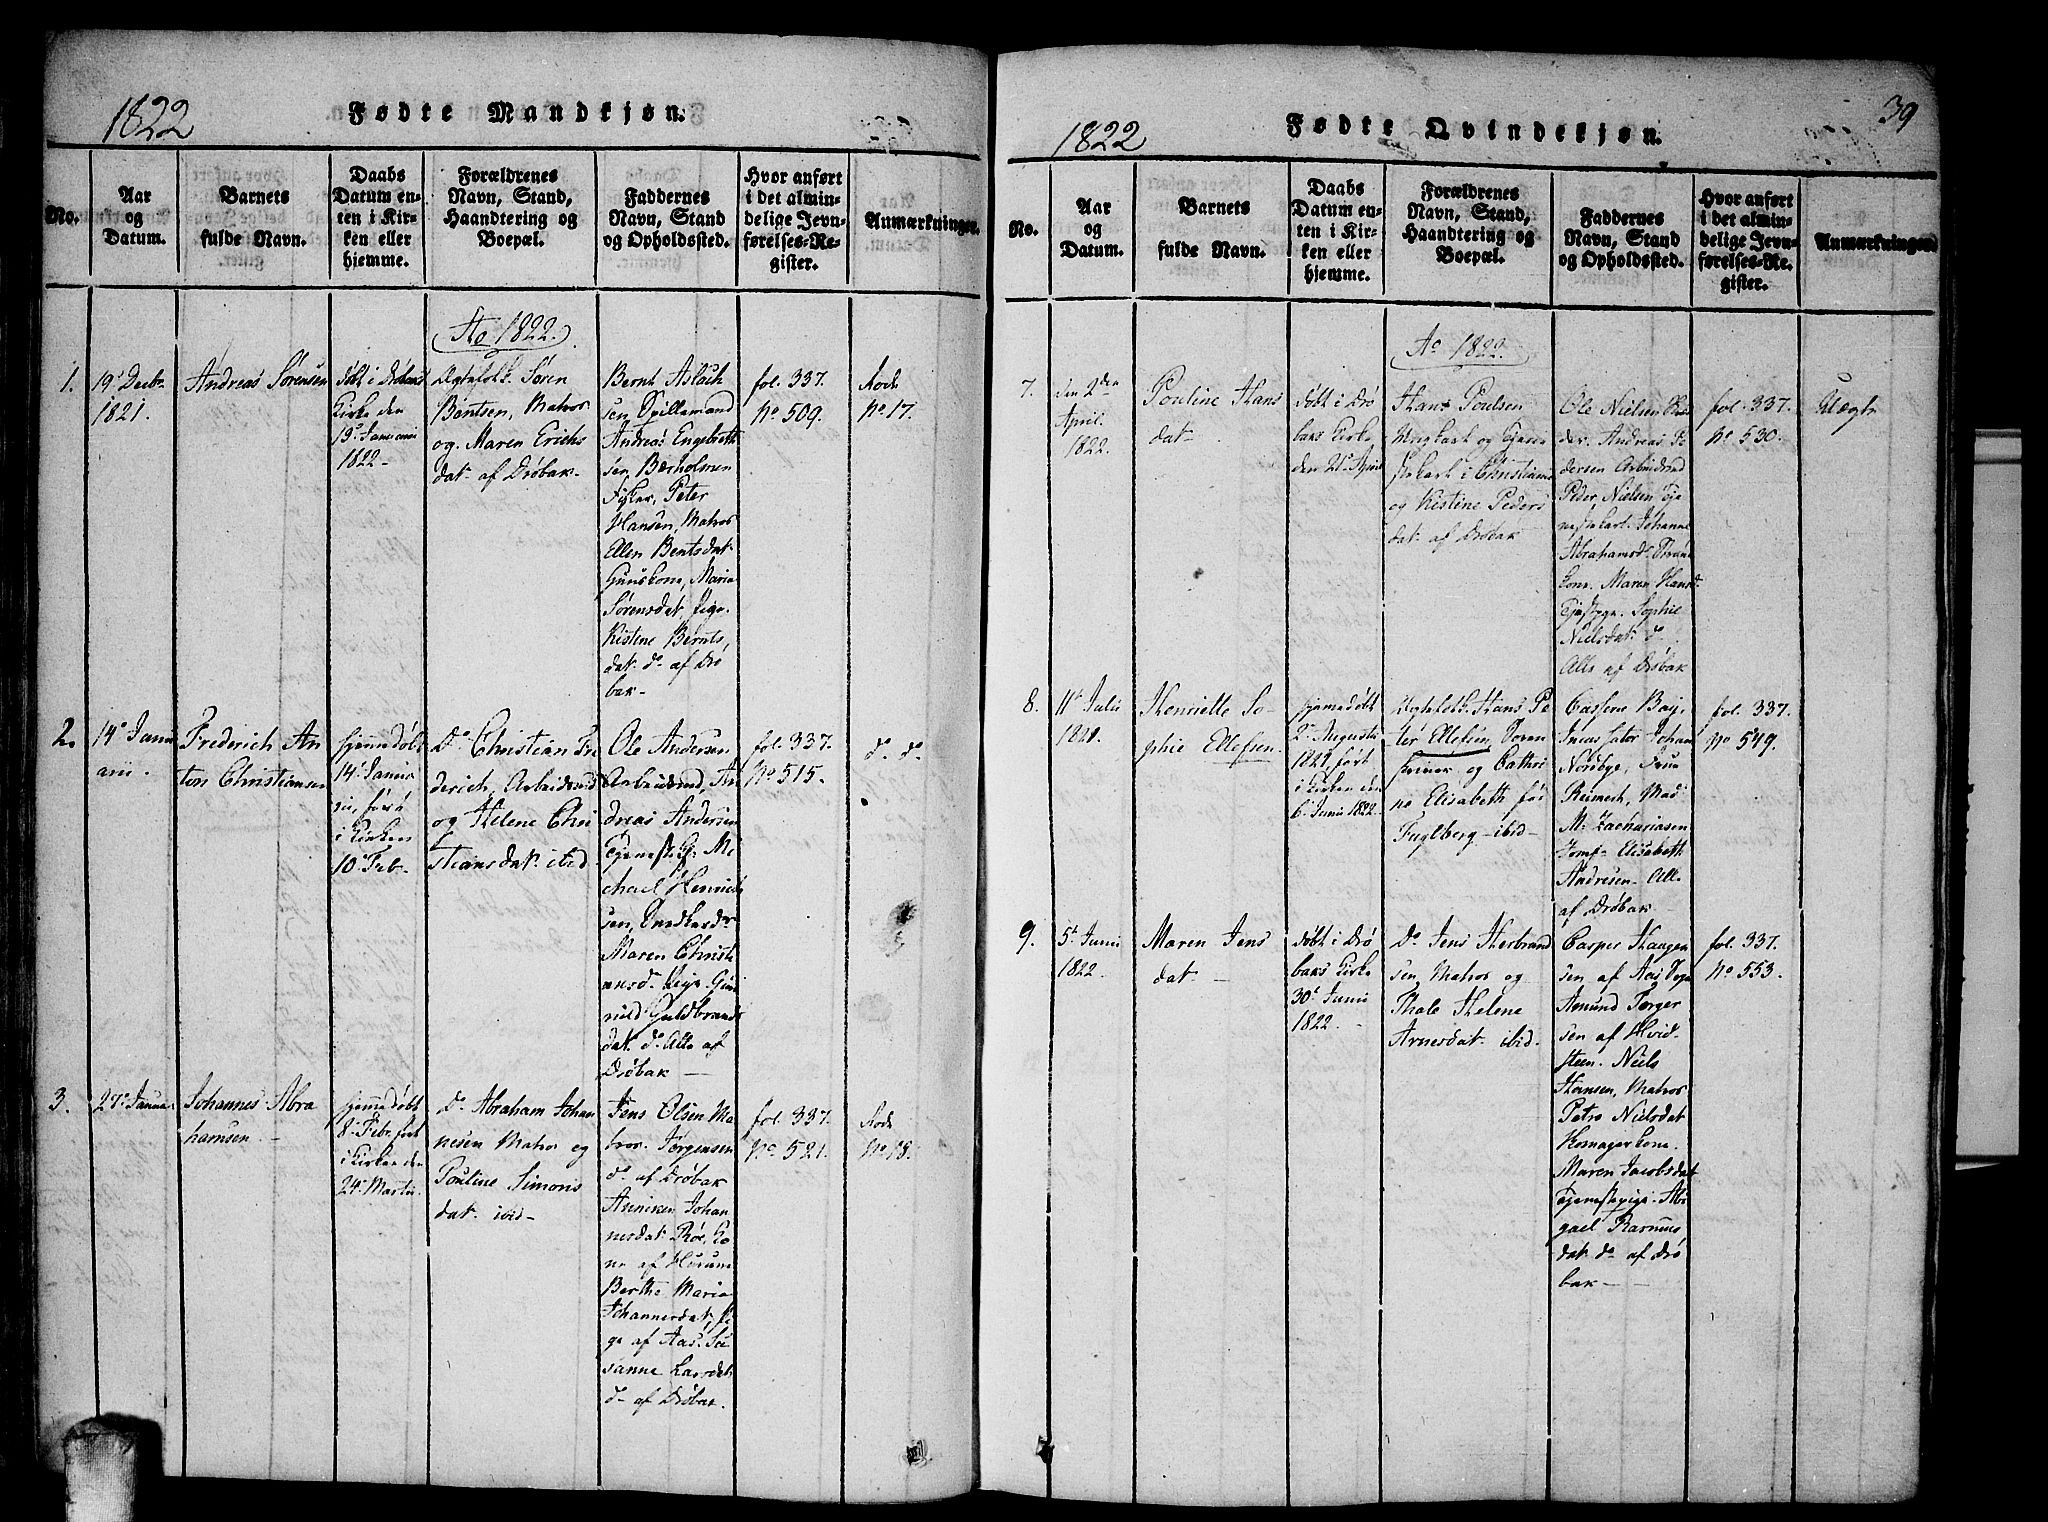 1822
Fødte Mandkjøn.
No.
Aar
og
Datum.
Barnets
fulde Navn.
Daabs
Datum en-
ten i Kir-
ken eller
hjemme.
Forældrenes
Navn, Stand,
Haandtering og
Boepæl.
Faddernes
Navn, Stand
og Opholdssted.
Hvor anført
i det almin-
delige Jevn-
førelses-Re-
gister.
Anmærkninger.
Ao 1822.
1.
19 Decbr
1821.
Andreas Sørensen
døbt i Drøbaks
Kirke den
19 Januarii
1822
Ægtefolk Søren
Bentsen, Matros
og Maren Erichs
dat. af Drøbak
Bernt Aslach
sen Spillemand
Andreas Engebreth
sen, Bærholmen
Fisker, Peter
Hansen, Matros
Ellen Bentsdat.
kone, Maria
Sørensdat. pige
Kistine Bernts,
dat. do af Drø
bak
fol. 337.
No 509.
No 17.
2.
14 Janu
arii
Frederich An
ton Christiansen
hjemmedøbt
14 Janua
rii,
i Kirken
10 Febr.
Do Christian Fre
derich, Arbeidsmd
og Helene Chri
stiansdat. ibid
Ole Andersen
Arbeidsmd, An
dreas Andersen
Mi
chael Henrich
sen,
Maren Christi
ansd. Pige Gun
nild Guldbrands
dat. do Alle af
Drøbak
fol. 337.
No 515.
do do
3.
27 Janua
Johannes Abra
hamsen
hjemmedøbt
8 Febr. ført
i Kirken den
24 Martii
do Abraham Johan
nesen Matros og
Pouline Simons
dat. ibid
Jens Olsen Ma
tros. Jørgensen
do af Drøbak
Anniken Johan
nesdat. Ko
ne af Hurum
Berthe Maria
Johannesdat. Pi
ge af Aas. Su
sanne Larsdat.
do af Drøbak.
fol. 337.
No 521.
No 18.
39
1822
Fødte Qvindekjøn.
No.
Aar
og
Datum.
Barnets
fulde Navn.
Daabs
Datum en-
ten i Kir-
ken eller
hjemme.
Forældrenes
Navn, Stand,
Haandtering og
Boepæl.
Faddernes
Navn, Stand
og Opholdssted.
Hvor anført
i det almin-
delige Jevn-
førelses-Re-
gister.
Anmærkninger.
Ao 1822.
7.
den 2den
April
1822.
Pouline Hans
dat
døbt i Drø
baks Kirke
den 21 April
Hans Poulsen
Ungkarl og Tjene
stekarl i Christiania
og Kistine Peders
dat. af Drøbak
Ole Nielsen
Andreas Pe
dersen Arbeidsmd
Peder Nielsen Tje
nestekarl. Johanne
Abrahamsd.
kone. Maren Hansd.
Sophie
Nielsdat. do
Alle af Drøbak
fol. 337.
No 530.
Uægte
8.
11 Julii
1821
Henriette So
phie Ellefsen
hjemmedøbt
2 Augusti
1821, ført
i Kirken den
6 Junii 1822.
Ægtefolk Hans Pe
ter Ellefsen,
skriver og Cathri
ne Elisabeth fød
Fuglberg ibid
Casserer Bay,
Johan
Nordbye,
Reimert, Mad:
M: Zachariasen
Jomf. Elisabeth
Andresen. Alle
af Drøbak
fol. 337.
No 549.
9.
5 Junii
1822.
Maren Jens
dat
døbt i Drø
baks Kirke
30 Junii
1822.
Do Jens Herbrand
sen, Matros og
Thale Helene
Arnesdat. ibid
Casper Haagen
sen af Aas Sogn
Amund Torger
sen af Hvid
steen. Niels
Hansen, Matros
Petro Nielsdat.
kone.
Maren Jacobsdat.
Tjenestepige. Abi
gael Rasmus
dat. do af Drø
bak
fol. 337.
No 553.